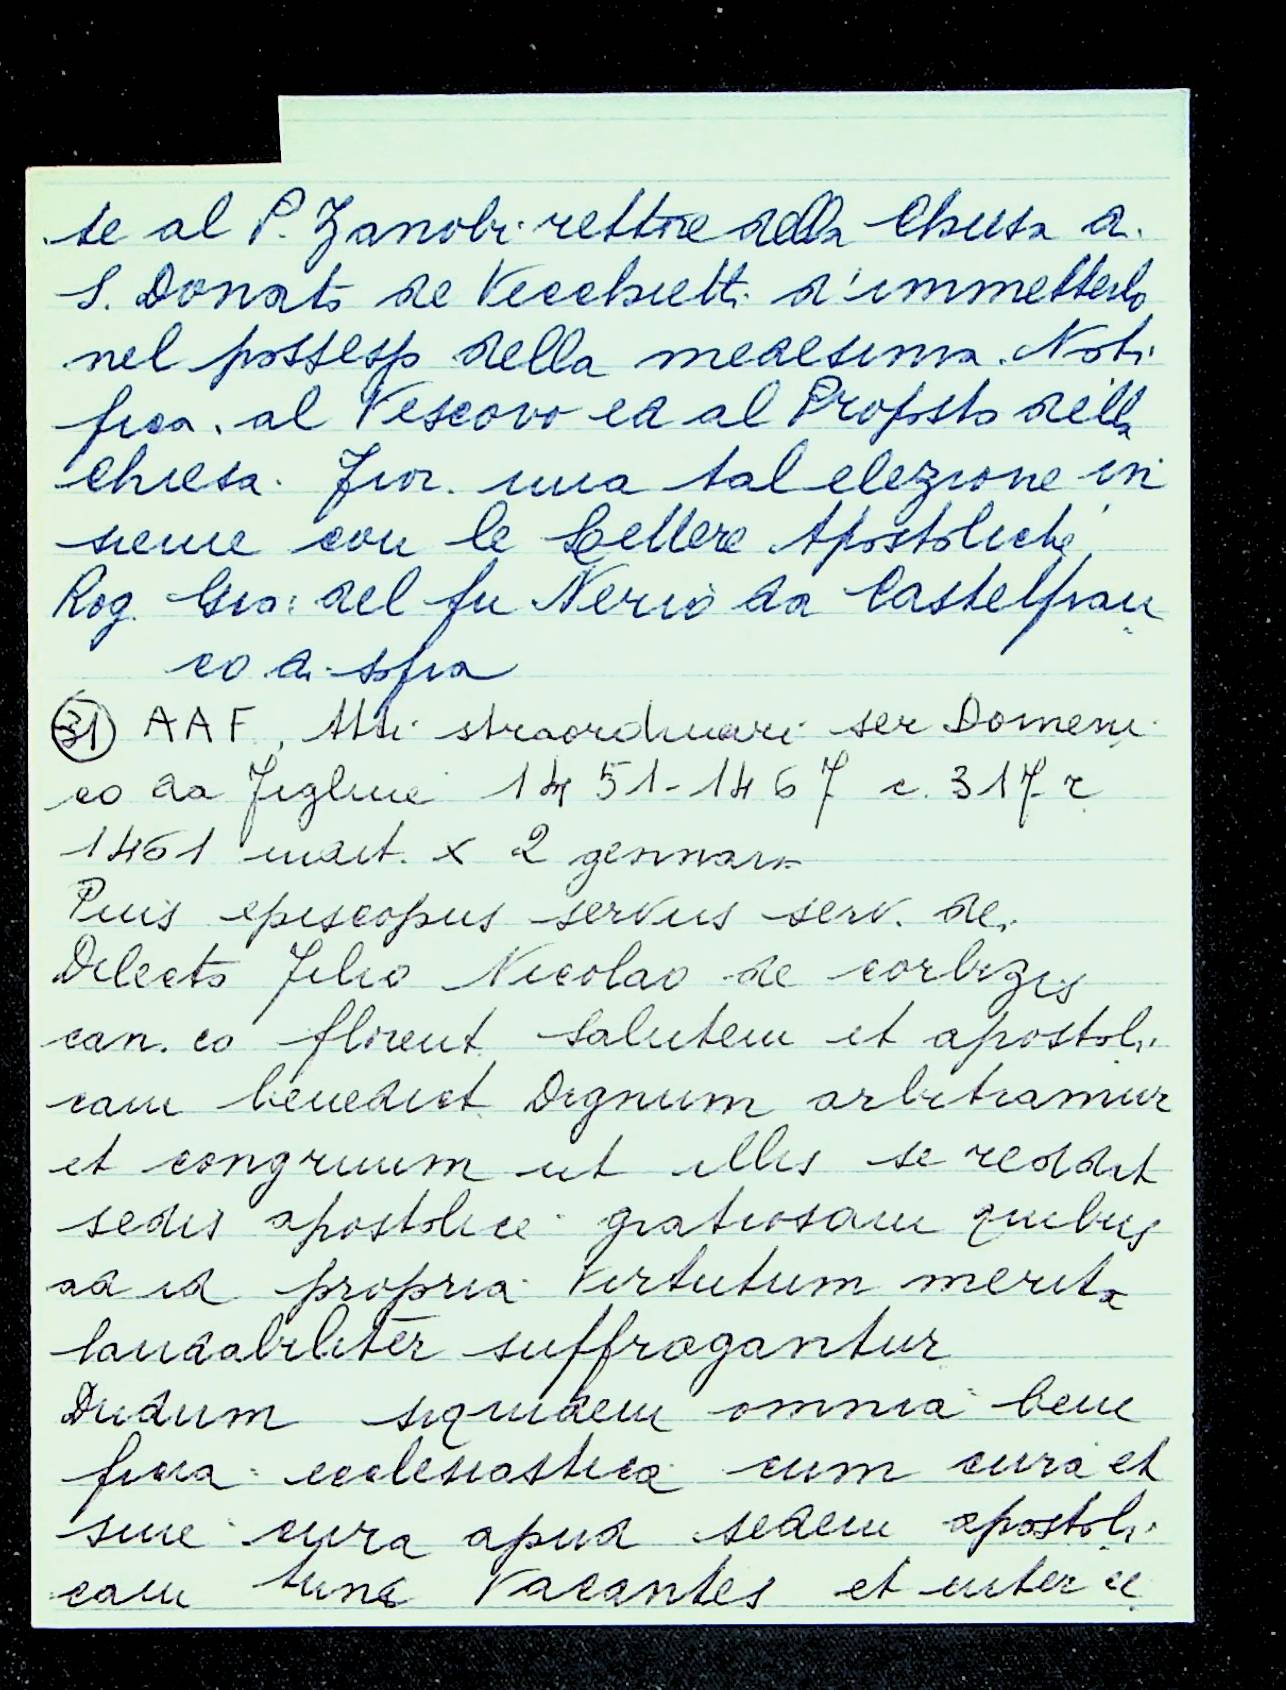 te al P. Zanobi rettore della Chiesa di
S. Donato de Vecchietti d'immetterlo
nel possesso della medesima. Noti
fica. al Vescovo ed al Proposto della
Chiesa. Fior. una tal elezione in
sieme con le Lettere Apostoliche
Rog. Gio: del fu Nerio da Castelfran
co di sopra
31 AAF, Atti straordinari ser Domeni
co da Figline 1451-1467 c. 317 r
1461 indict. X 2 gennaro
Pius episcopus servus serv. dei
Dilecto filio Nicolao de corbizis
can. co florent salutem et apostoli
cam benedict Dignum arbitramur
et congruum ut illis se reddit
sedis apostolice gratiosam quibus
ad id propria virtutum merita
laudabiliter suffragantur
Dudum siquidem omnia bene
ficia ecclesiastica cum cura et
sine cura apud sedem apostoli
cam tunc vacantes et inter ce